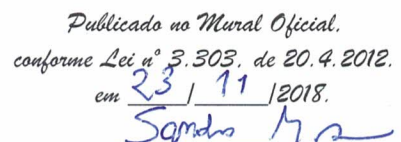 Publicado no Mural Oficial.
conforme Lei nº 3.303, de 20.4.2012.
em 23/11/2018.
Sandra